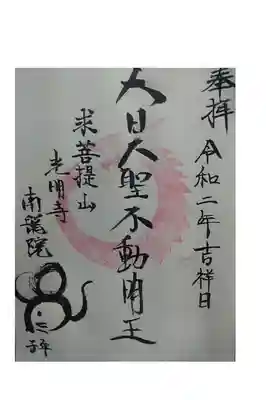 奉拝
令和二年吉祥日
大日大聖不動明王
求菩提山
光明寺
南龍院
子年